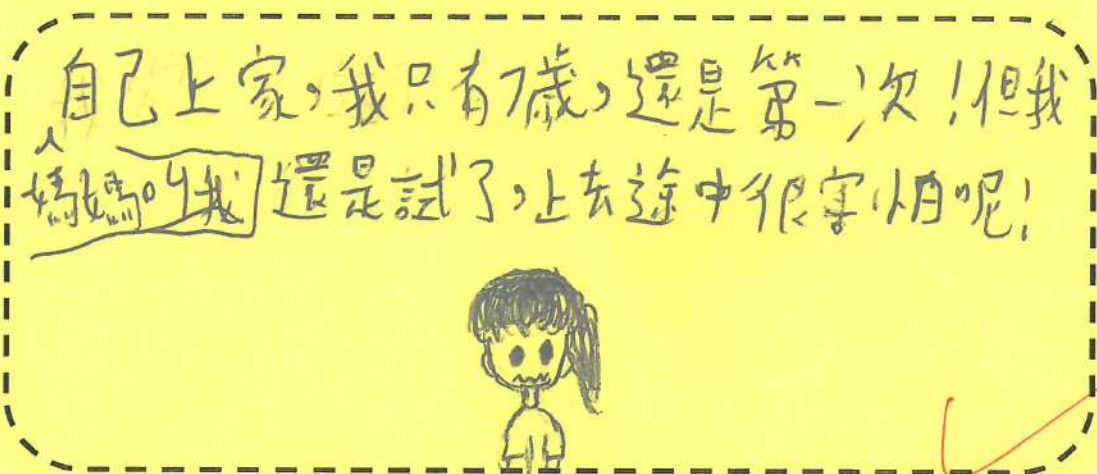 自己上家，我只有7歲，還是第一次！但我
媽媽叫我還是試了，上去途中很害怕呢！